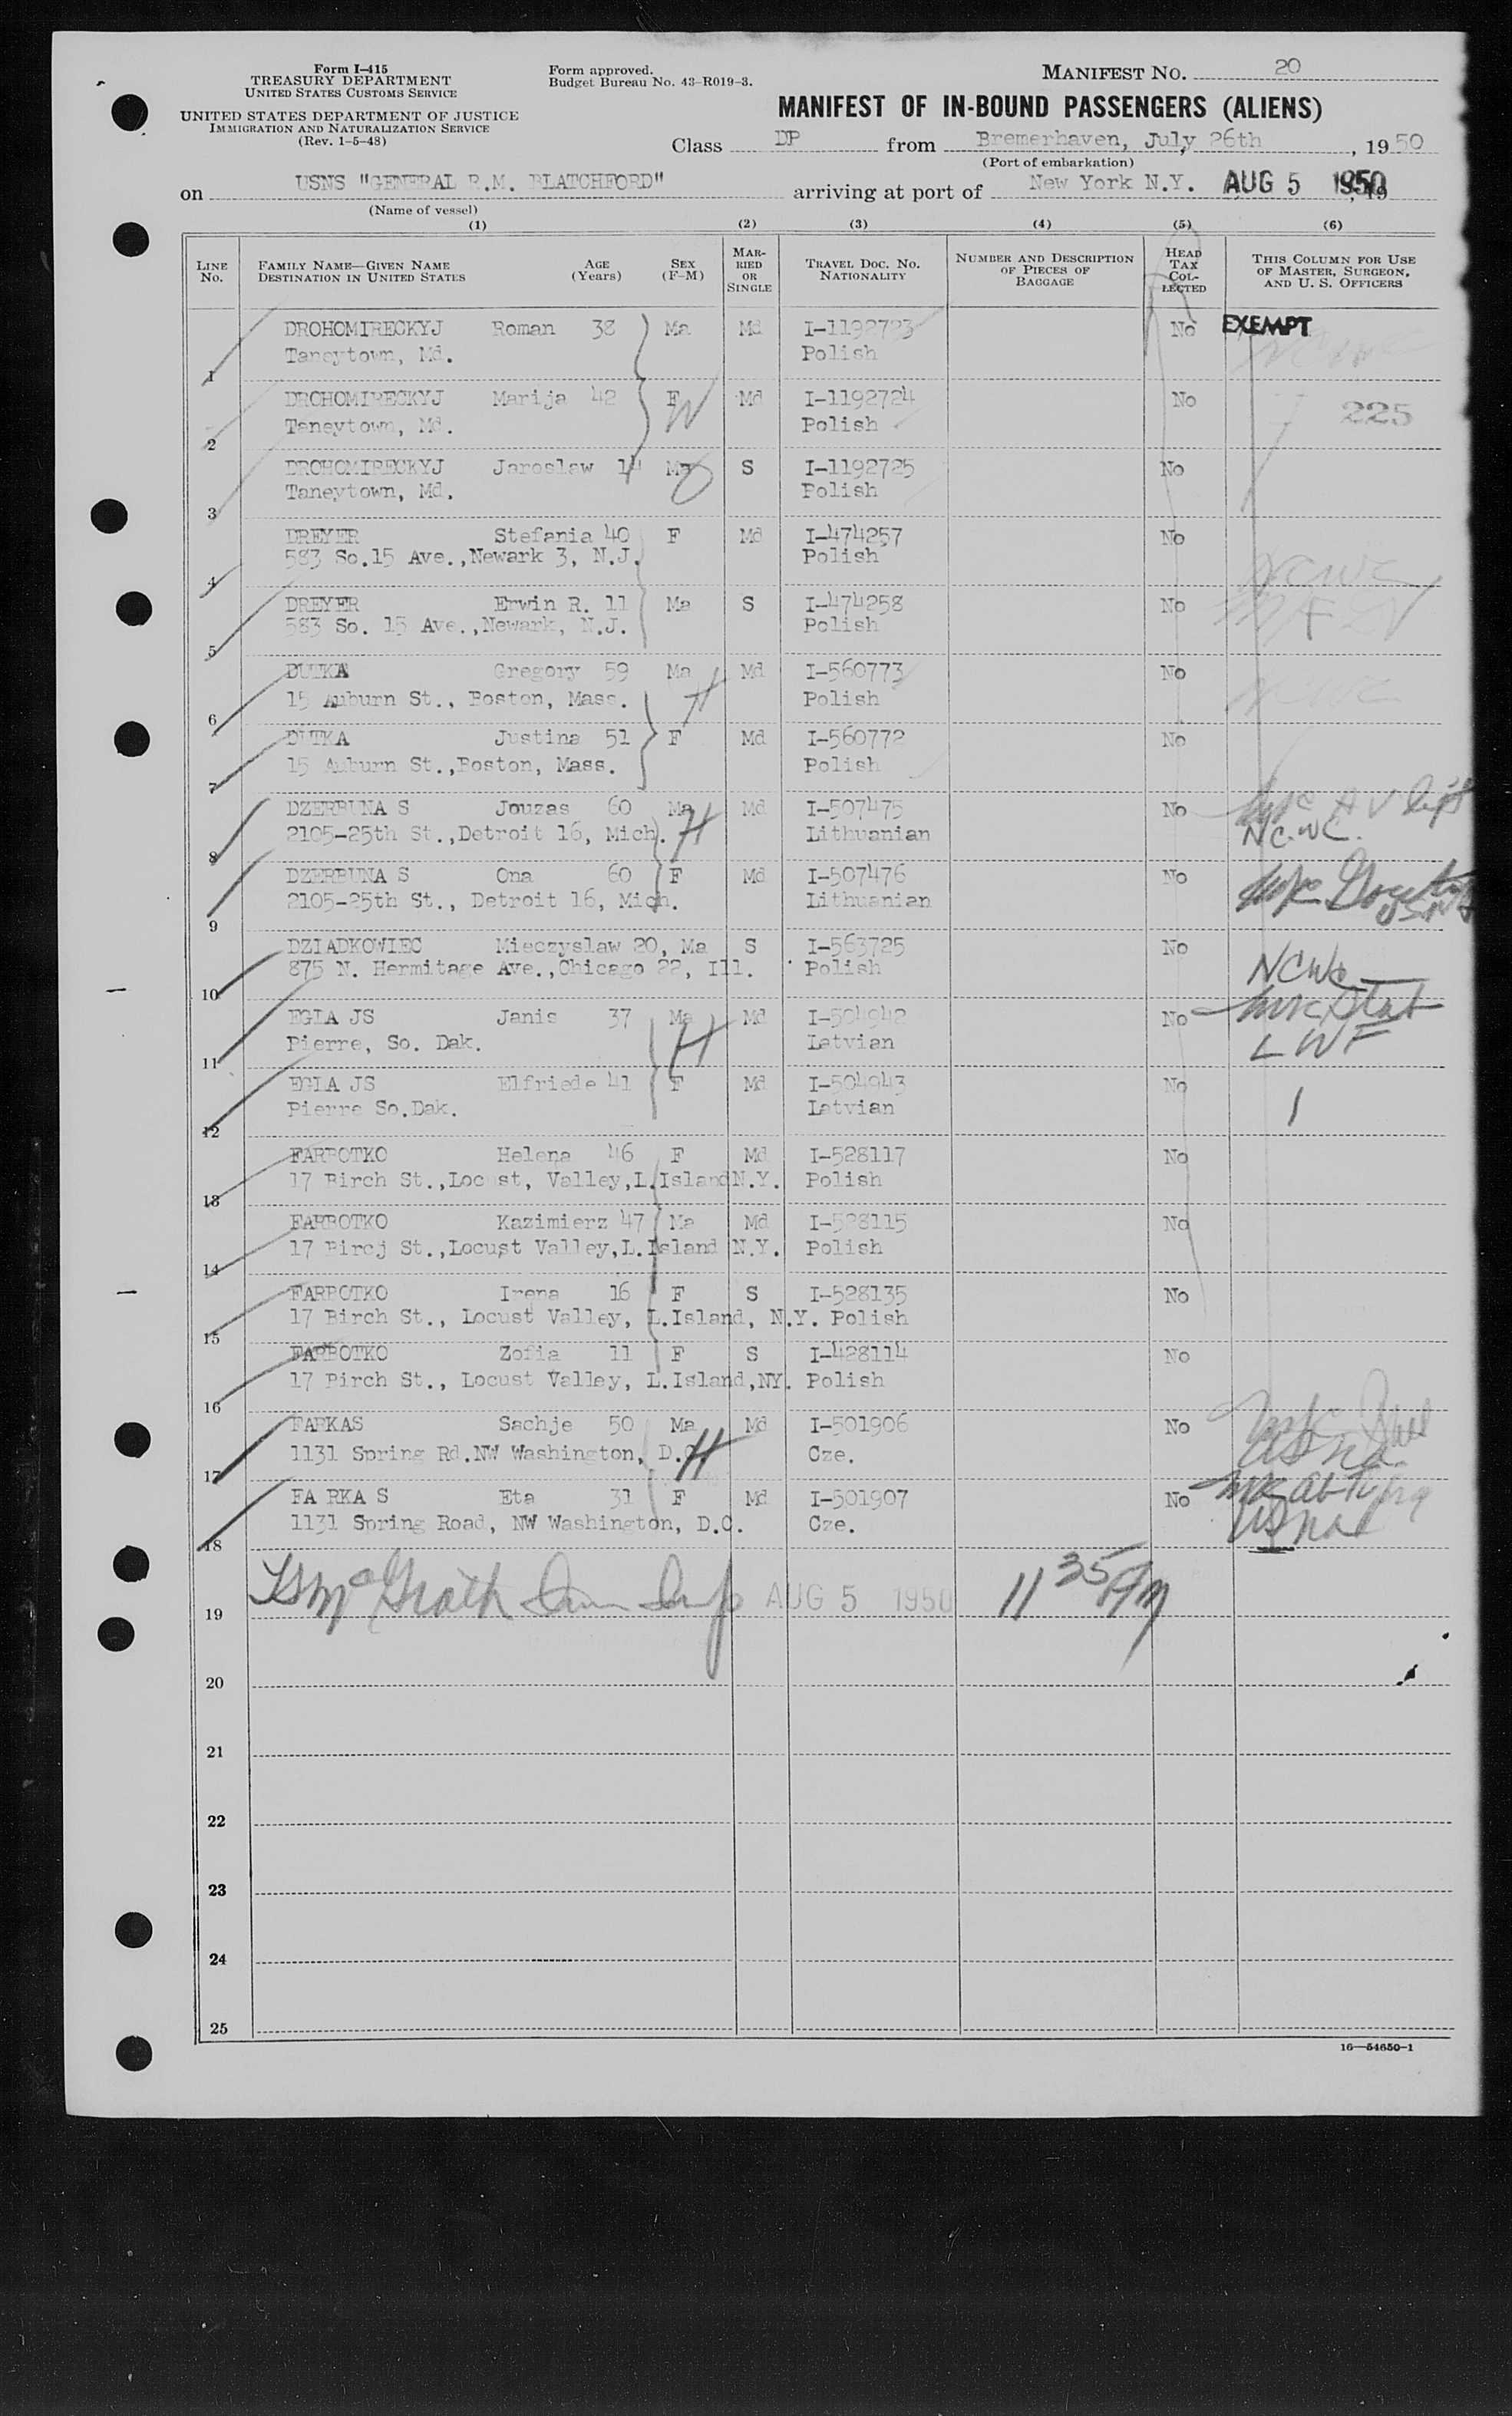 Form I-415
TREASURY DEPARTMENT
UNITED STATES CUSTOMS SERVICE
UNITED STATES DEPARTMENT OF JUSTICE
IMMIGRATION AND NATURALIZATION SERVICE
(Rev. 1-5-48)
Form approved.
Budget Bureau No. 43-R019-3.
MANIFEST NO. 20
MANIFEST OF IN-BOUND PASSENGERS (ALIENS)
Class DP from Bremerhaven, July 26th, 1950
(Port of embarkation)
on USNS "GENERAL R.M. BLATCHFORD" arriving at port of New York N.Y. AUG 5 1950, 19
(Name of vessel)
(1) (2) (3) (4) (5) (6)
LINE No. FAMILY NAME—GIVEN NAME DESTINATION IN UNITED STATES AGE (Years) SEX (F-M) MARRIED OR SINGLE TRAVEL DOC. NO. NATIONALITY NUMBER AND DESCRIPTION OF PIECES OF BAGGAGE HEAD TAX COLLECTED THIS COLUMN FOR USE OF MASTER, SURGEON, AND U. S. OFFICERS
DROHOMIRECKYJ Roman 38 Ma Md I-1192723 No EXEMPT
1 Taneytown, Md. Polish
DROHOMIRECKYJ Marija 42 F Md I-1192724 No 225
2 Taneytown, Md. Polish
DROHOMIRECKYJ Jaroslaw 14 Ma S I-1192725 No
3 Taneytown, Md. Polish
DREYER Stefania 40 F Md I-474257 No
4 583 So.15 Ave.,Newark 3, N.J. Polish NCWC
DREYER Erwin R. 11 Ma S I-474258 No
5 583 So. 15 Ave.,Newark, N.J. Polish
DUTKA Gregory 59 Ma Md I-560773 No
6 15 Auburn St., Boston, Mass. H Polish NCWC
DUTKA Justina 51 F Md I-560772 No
7 15 Auburn St.,Boston, Mass. Polish
DZERBUNA S Jouzas 60 Ma Md I-507475 No
8 2105-25th St.,Detroit 16, Mich. H Lithuanian NCWC.
DZERBUNA S Ona 60 F Md I-507476 No
9 2105-25th St., Detroit 16, Mich. Lithuanian
DZIADKOWIEC Mieczyslaw 20, Ma S I-563725 No
10 875 N. Hermitage Ave.,Chicago 22, Ill. Polish NCWC
EGLA JS Janis 37 Ma Md I-504942 No
11 Pierre, So. Dak. H Latvian LWF
EGLA JS Elfriede 41 F Md I-504943 No
12 Pierre So.Dak. Latvian
FARBOTKO Helena 46 F Md I-528117 No
13 17 Birch St.,Locust, Valley,L.Island N.Y. Polish
FARBOTKO Kazimierz 47 Ma Md I-528115 No
14 17 Bircj St.,Locust Valley,L.Island N.Y. Polish
FARBOTKO Irena 16 F S I-528135 No
15 17 Birch St., Locust Valley, L.Island, N.Y. Polish
FARBOTKO Zofia 11 F S I-428114 No
16 17 Birch St., Locust Valley, L.Island,NY. Polish
FARKAS Sachje 50 Ma Md I-501906 No
17 1131 Spring Rd.NW Washington, D.C. H Cze. USNA
FA RKA S Eta 31 F Md I-501907 No
18 1131 Spring Road, NW Washington, D.C. Cze. USNA
19 McGrath Imm Insp AUG 5 1950 11 35 AM
20
21
22
23
24
25
16—54650-1